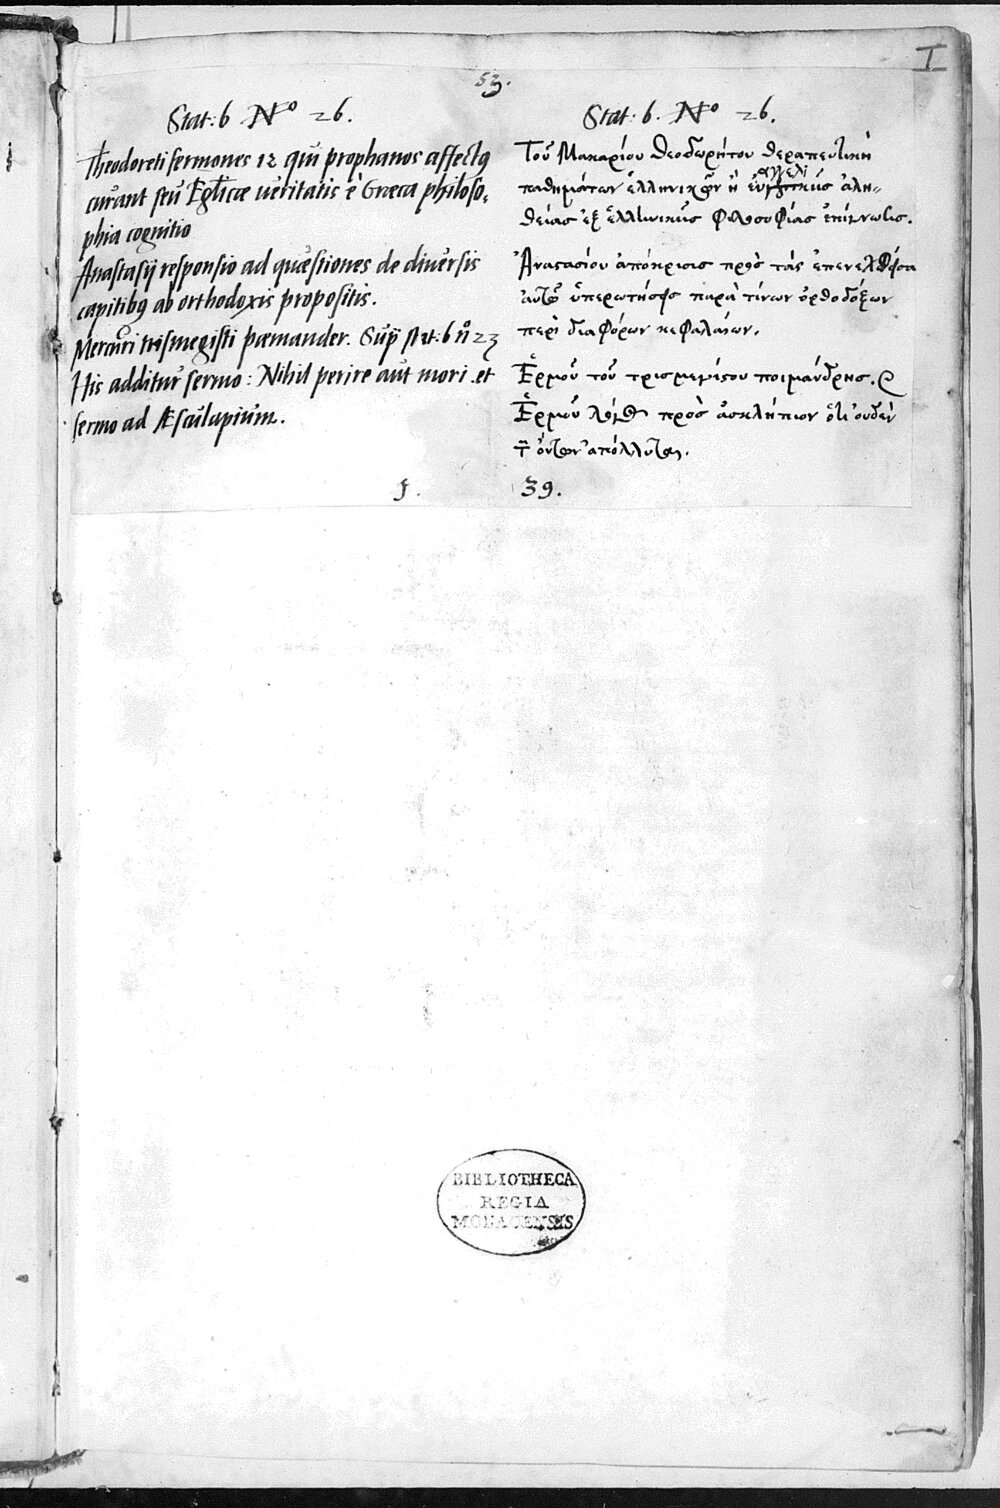 I
53.
Stat: 6 Nº 26.
Theodoreti sermones 12 qui prophanos affectus
curant seu Eglicæ veritatis è Græca philoso,
phia cognitio
Anastasij responsio ad quæstiones de diversis
capitibus ab orthodoxis propositis.
Mercuri trismegisti pæmander. Supr stat: 6 nº 23
His additur sermo: Nihil perire aut mori. et
sermo ad Æsculapium.
Stat: 6. Nº 26.
Τοῦ Μακαρίου Θεοδωρήτου θεραπευτικὴ
παθημάτων ἑλληνικῶν ἢ εὐαγγελικῆς ἀλη-
θείας ἐξ ἑλλινικῆς φιλοσοφίας ἐπίγνωσις.
Ἀναστασίου ἀπόκρισις πρὸς τὰς ἐπενεχθείσας
αὐτῷ ὑπερωτήσεις παρὰ τίνων ὀρθοδόξων
περὶ διαφόρων κεφαλαίων.
Ἑρμοῦ τοῦ τρισμεγίστου ποιμάνδρης.
Ἑρμοῦ λόγος πρὸς ἀσκλήπιων ὅτι οὐδὲν
τῶν ὄντων ἀπόλλυται.
1.
39.
BIBLIOTHECA
REGIA
MONACENSIS